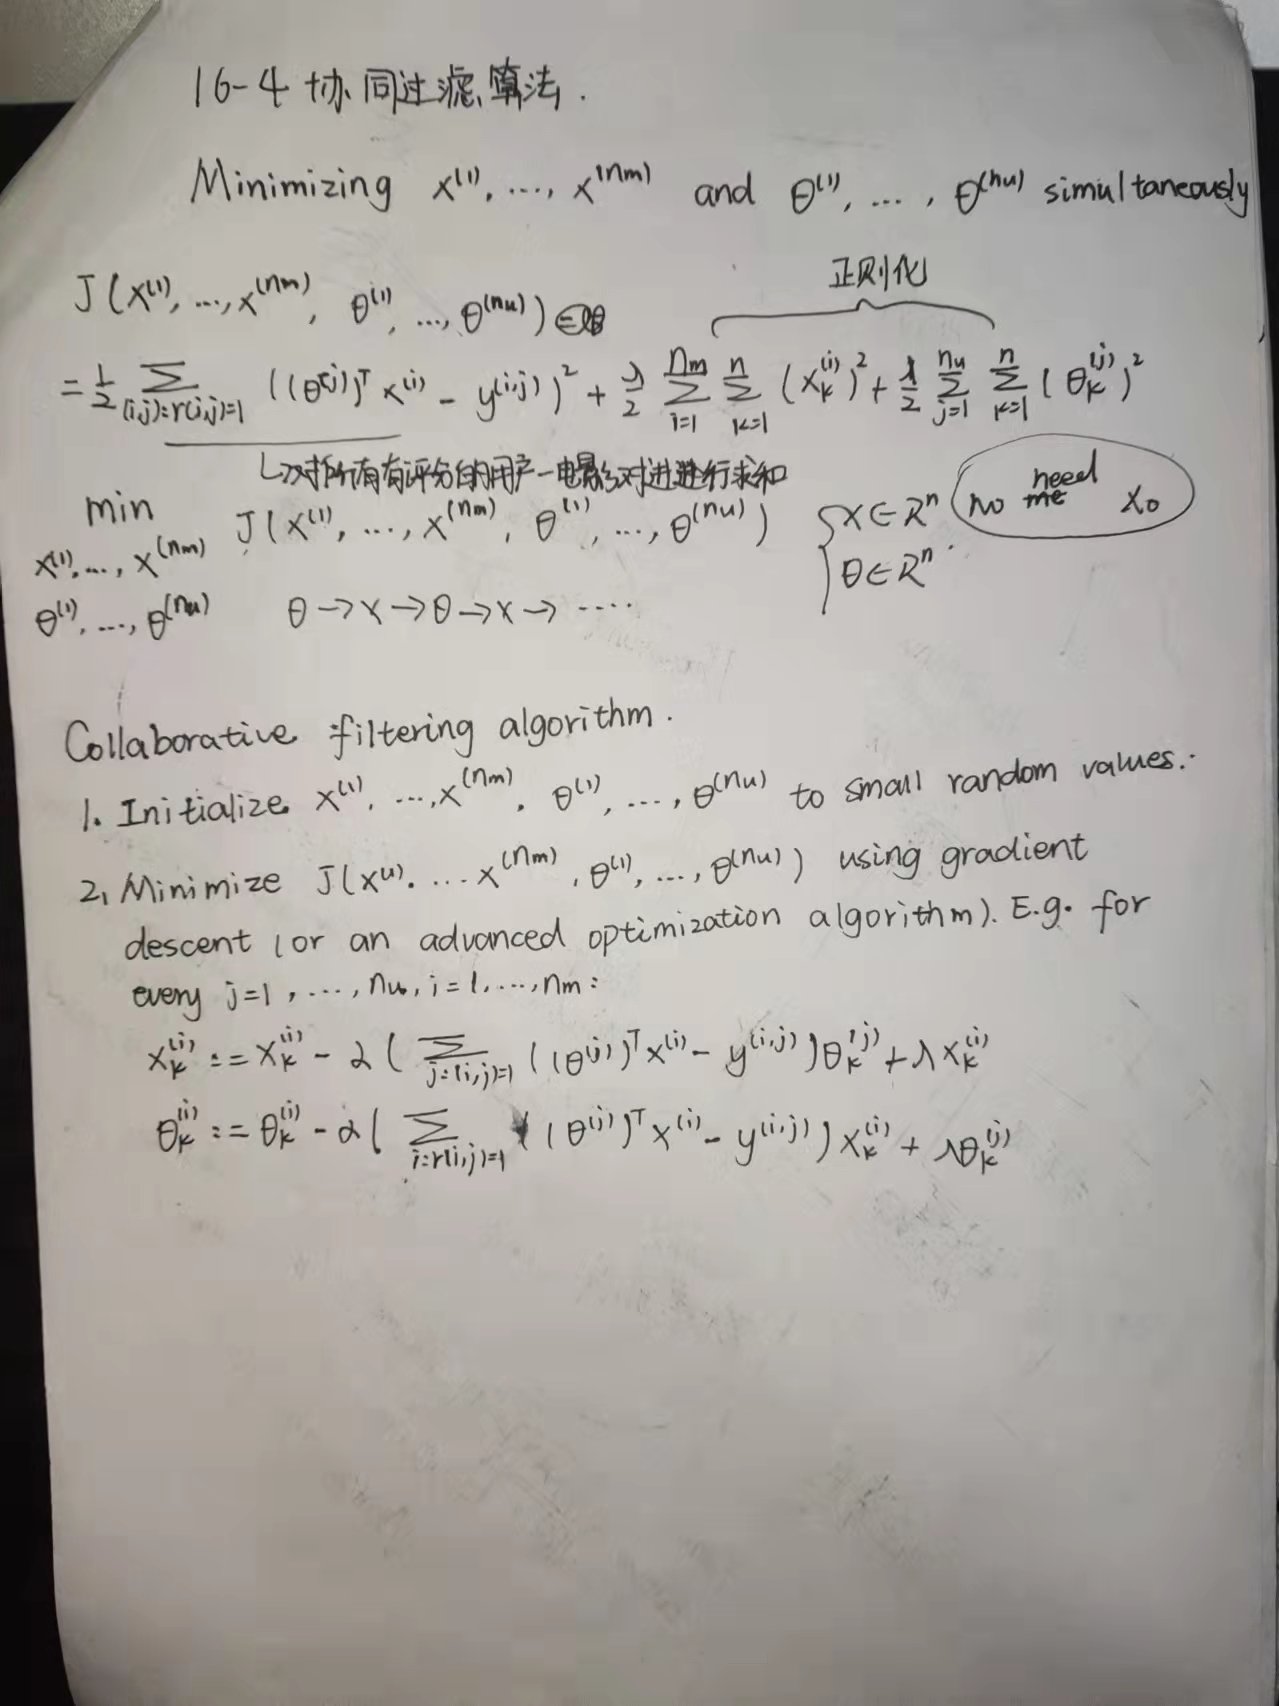 16-4 协同过滤算法.
Minimizing x⁽¹⁾, ..., x⁽ⁿᵐ⁾ and θ⁽¹⁾, ..., θ⁽ⁿᵘ⁾ simultaneously
正则化
J(x⁽¹⁾, ..., x⁽ⁿᵐ⁾, θ⁽¹⁾, ..., θ⁽ⁿᵘ⁾) =
= 1/2 Σ_{(i,j):r(i,j)=1} ((θ^{(j)})^T x^{(i)} - y^{(i,j)})² + λ/2 Σ_{i=1}^{nm} Σ_{k=1}^{n} (x_k^{(i)})² + λ/2 Σ_{j=1}^{nu} Σ_{k=1}^{n} (θ_k^{(j)})²
↳对所有有评分的用户-电影对进进行求和
min J(x⁽¹⁾, ..., x⁽ⁿᵐ⁾, θ⁽¹⁾, ..., θ⁽ⁿᵘ⁾) { x∈Rⁿ no need x₀
x⁽¹⁾, ..., x⁽ⁿᵐ⁾ θ∈Rⁿ
θ⁽¹⁾, ..., θ⁽ⁿᵘ⁾ θ→x→θ→x→ ....
Collaborative filtering algorithm.
1. Initialize x⁽¹⁾, ..., x⁽ⁿᵐ⁾, θ⁽¹⁾, ..., θ⁽ⁿᵘ⁾ to small random values.
2, Minimize J(x⁽¹⁾, ... x⁽ⁿᵐ⁾, θ⁽¹⁾, ..., θ⁽ⁿᵘ⁾) using gradient
descent (or an advanced optimization algorithm). E.g. for
every j=1, ..., nu, i=1, ..., nm:
x_k^{(i)} := x_k^{(i)} - α( Σ_{j:(i,j)=1} ((θ^{(j)})^T x^{(i)} - y^{(i,j)})θ_k^{(j)} + λx_k^{(i)}
θ_k^{(i)} := θ_k^{(i)} - α( Σ_{i:r(i,j)=1} ((θ^{(j)})^T x^{(i)} - y^{(i,j)})x_k^{(i)} + λθ_k^{(j)}